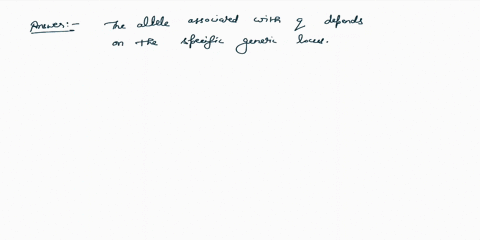 Answer:- The allele associated with q depends
on the specific generic locus.